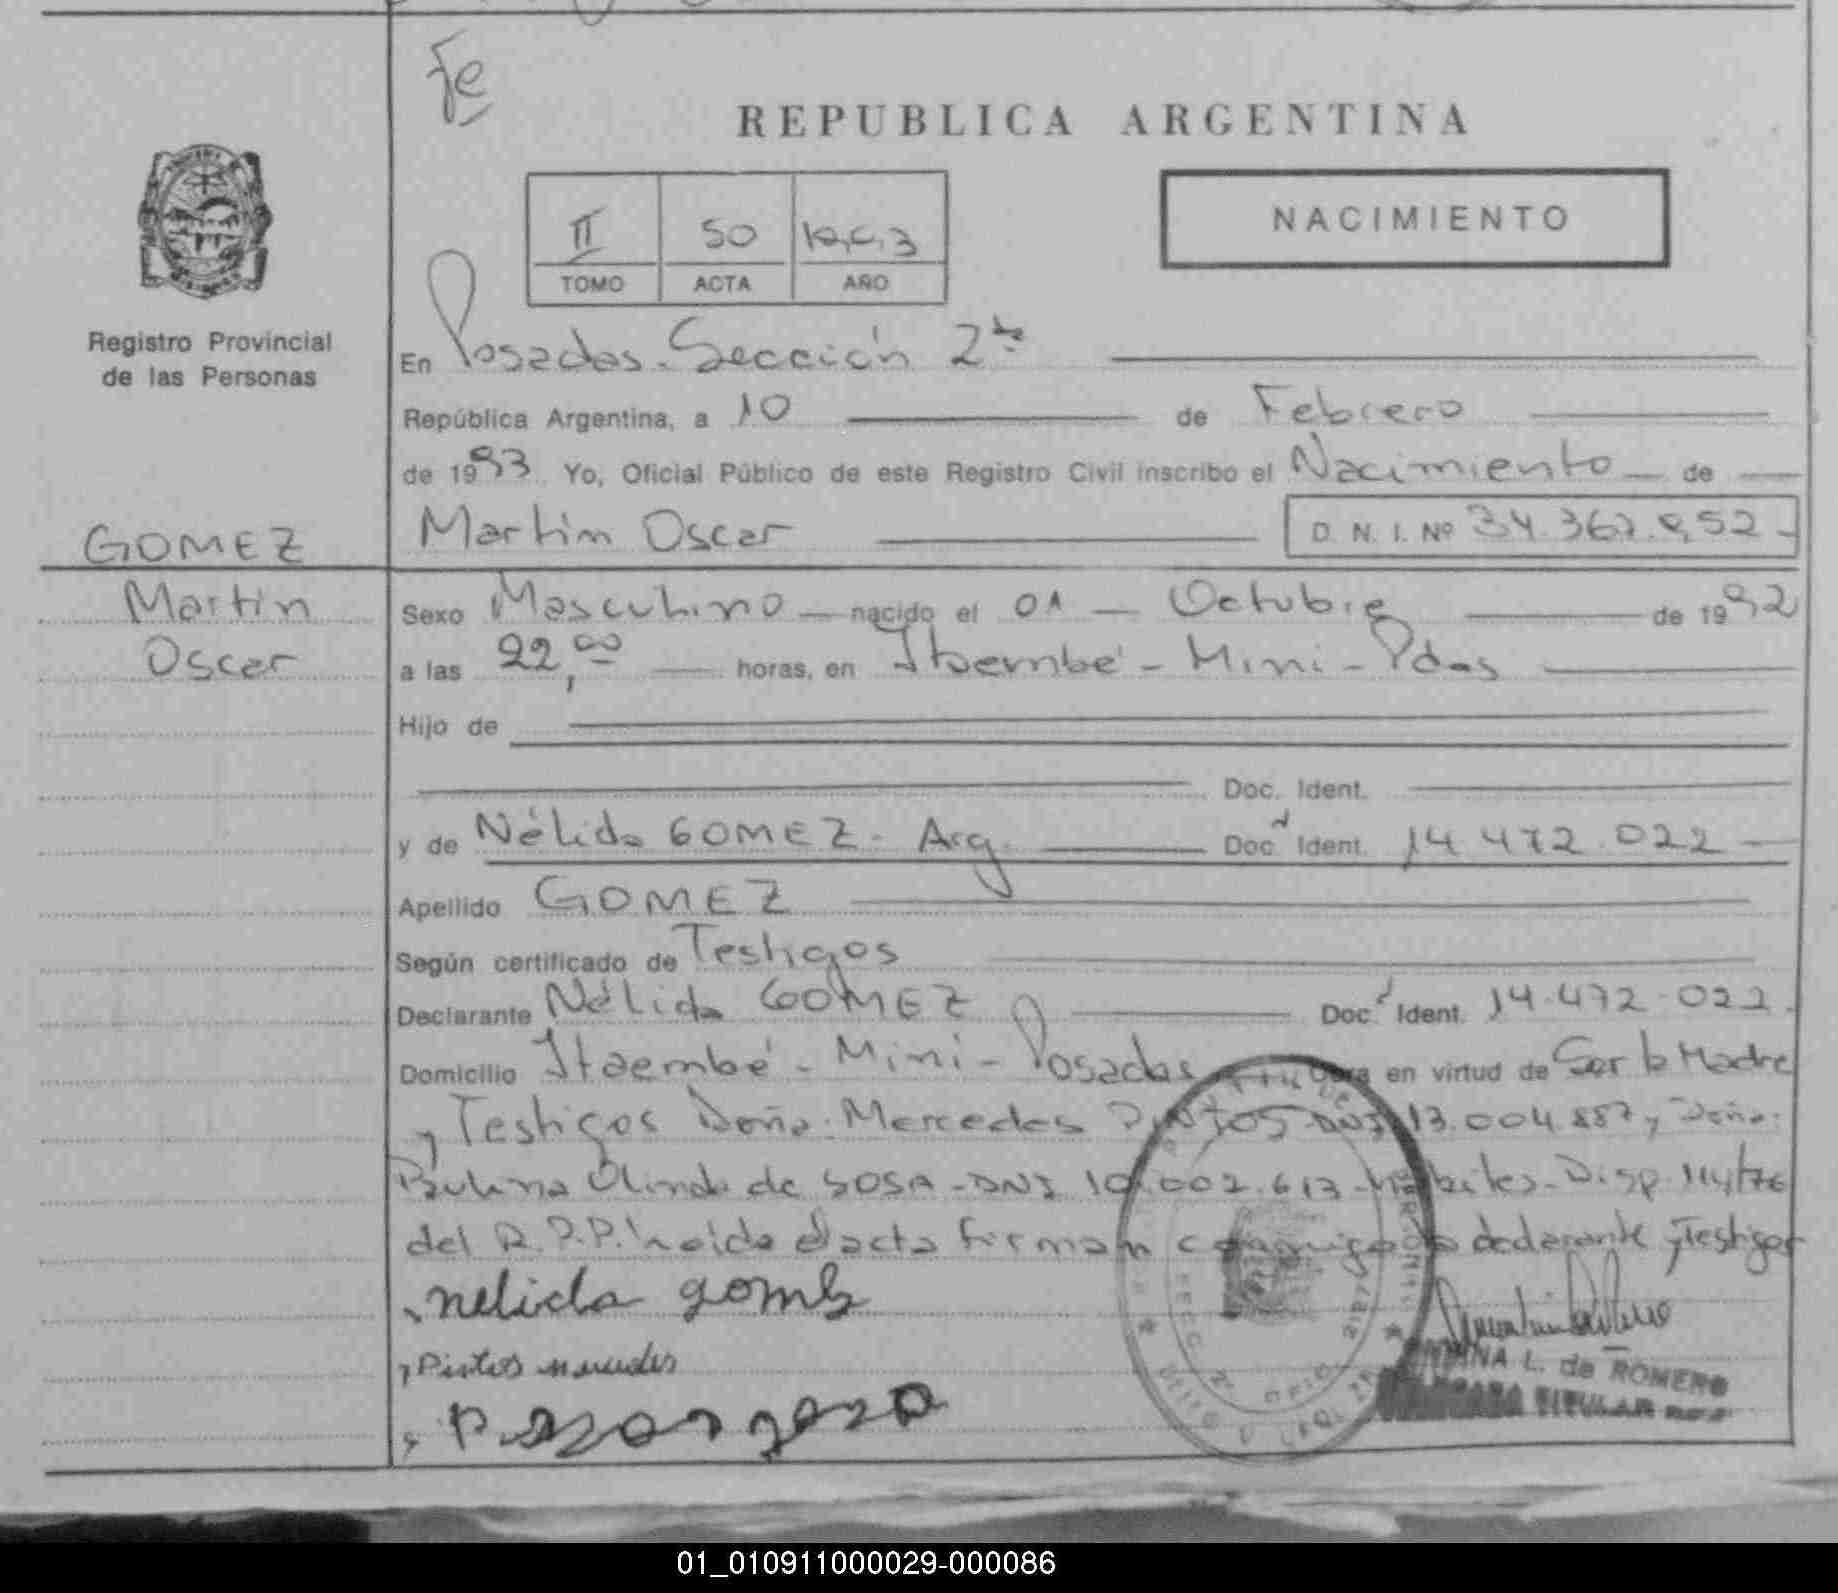 Fe
REPUBLICA ARGENTINA
NACIMIENTO
II 50 1993
TOMO ACTA AÑO
Registro Provincial
de las Personas
En Posadas - Sección 2da
República Argentina, a 10 de Febrero
de 1993 Yo, Oficial Público de este Registro Civil inscribo el Nacimiento de
GOMEZ
Martin Oscar D. N. I. Nº 34.367.952
Martin
Oscar
Sexo Masculino nacido el 01 Octubre de 1992
a las 22,00 horas, en Itaembé - Mini - Pdas
Hijo de
Doc. Ident.
y de Nélida GOMEZ - Arg. Doc. Ident. 14.472.022
Apellido GOMEZ
Según certificado de Testigos
Declarante Nélida GOMEZ Doc. Ident. 14.472.022
Domicilio Itaembé - Mini - Posadas Obra en virtud de Ser la Madre
y Testigos Doña Mercedes PINTOS DNI 13.004.887 y Doña
Paulina Olinda de SOSA - DNI 10.002.613 - Hábiles - Disp. 114/76
del R.P.P. Leída el acta firman conmigo la declarante y Testigos
nelida gomez
Pintos mercedes
L. de ROMERO
TITULAR
01_010911000029-000086